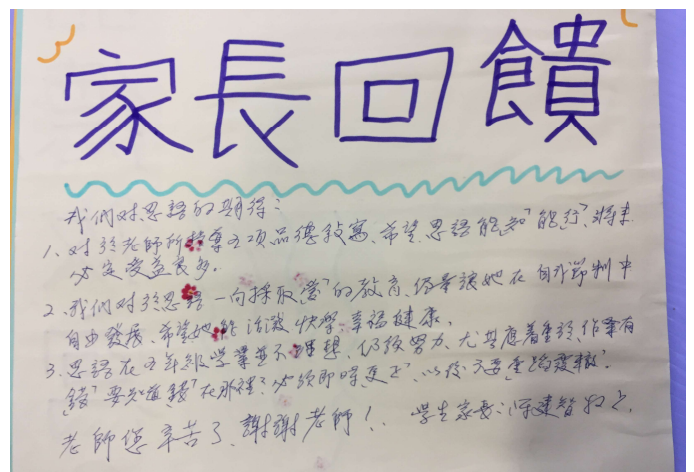 家長回饋
我們对思語的期待:
1、对於老師所指導五項品德、希望思語能知「能行」、將來
必定受益良多.
2、我們对於思語一向採取「愛」的教育、儘量讓她在自我節制中
自由發展、希望她能活潑快樂、幸福健康.
3、思語在五年級學業並不理想、仍須努力、尤其應着重於作業有
錯「要知道錯」在那裡?必須即時更正、以後不要重蹈覆轍.
老師您辛苦了、謝謝老師!. 學生家長: